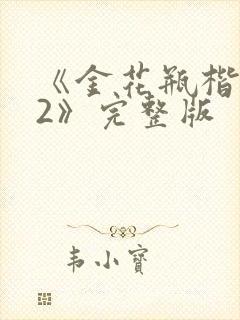 《金花瓶楷
2》完整版
韦小宝